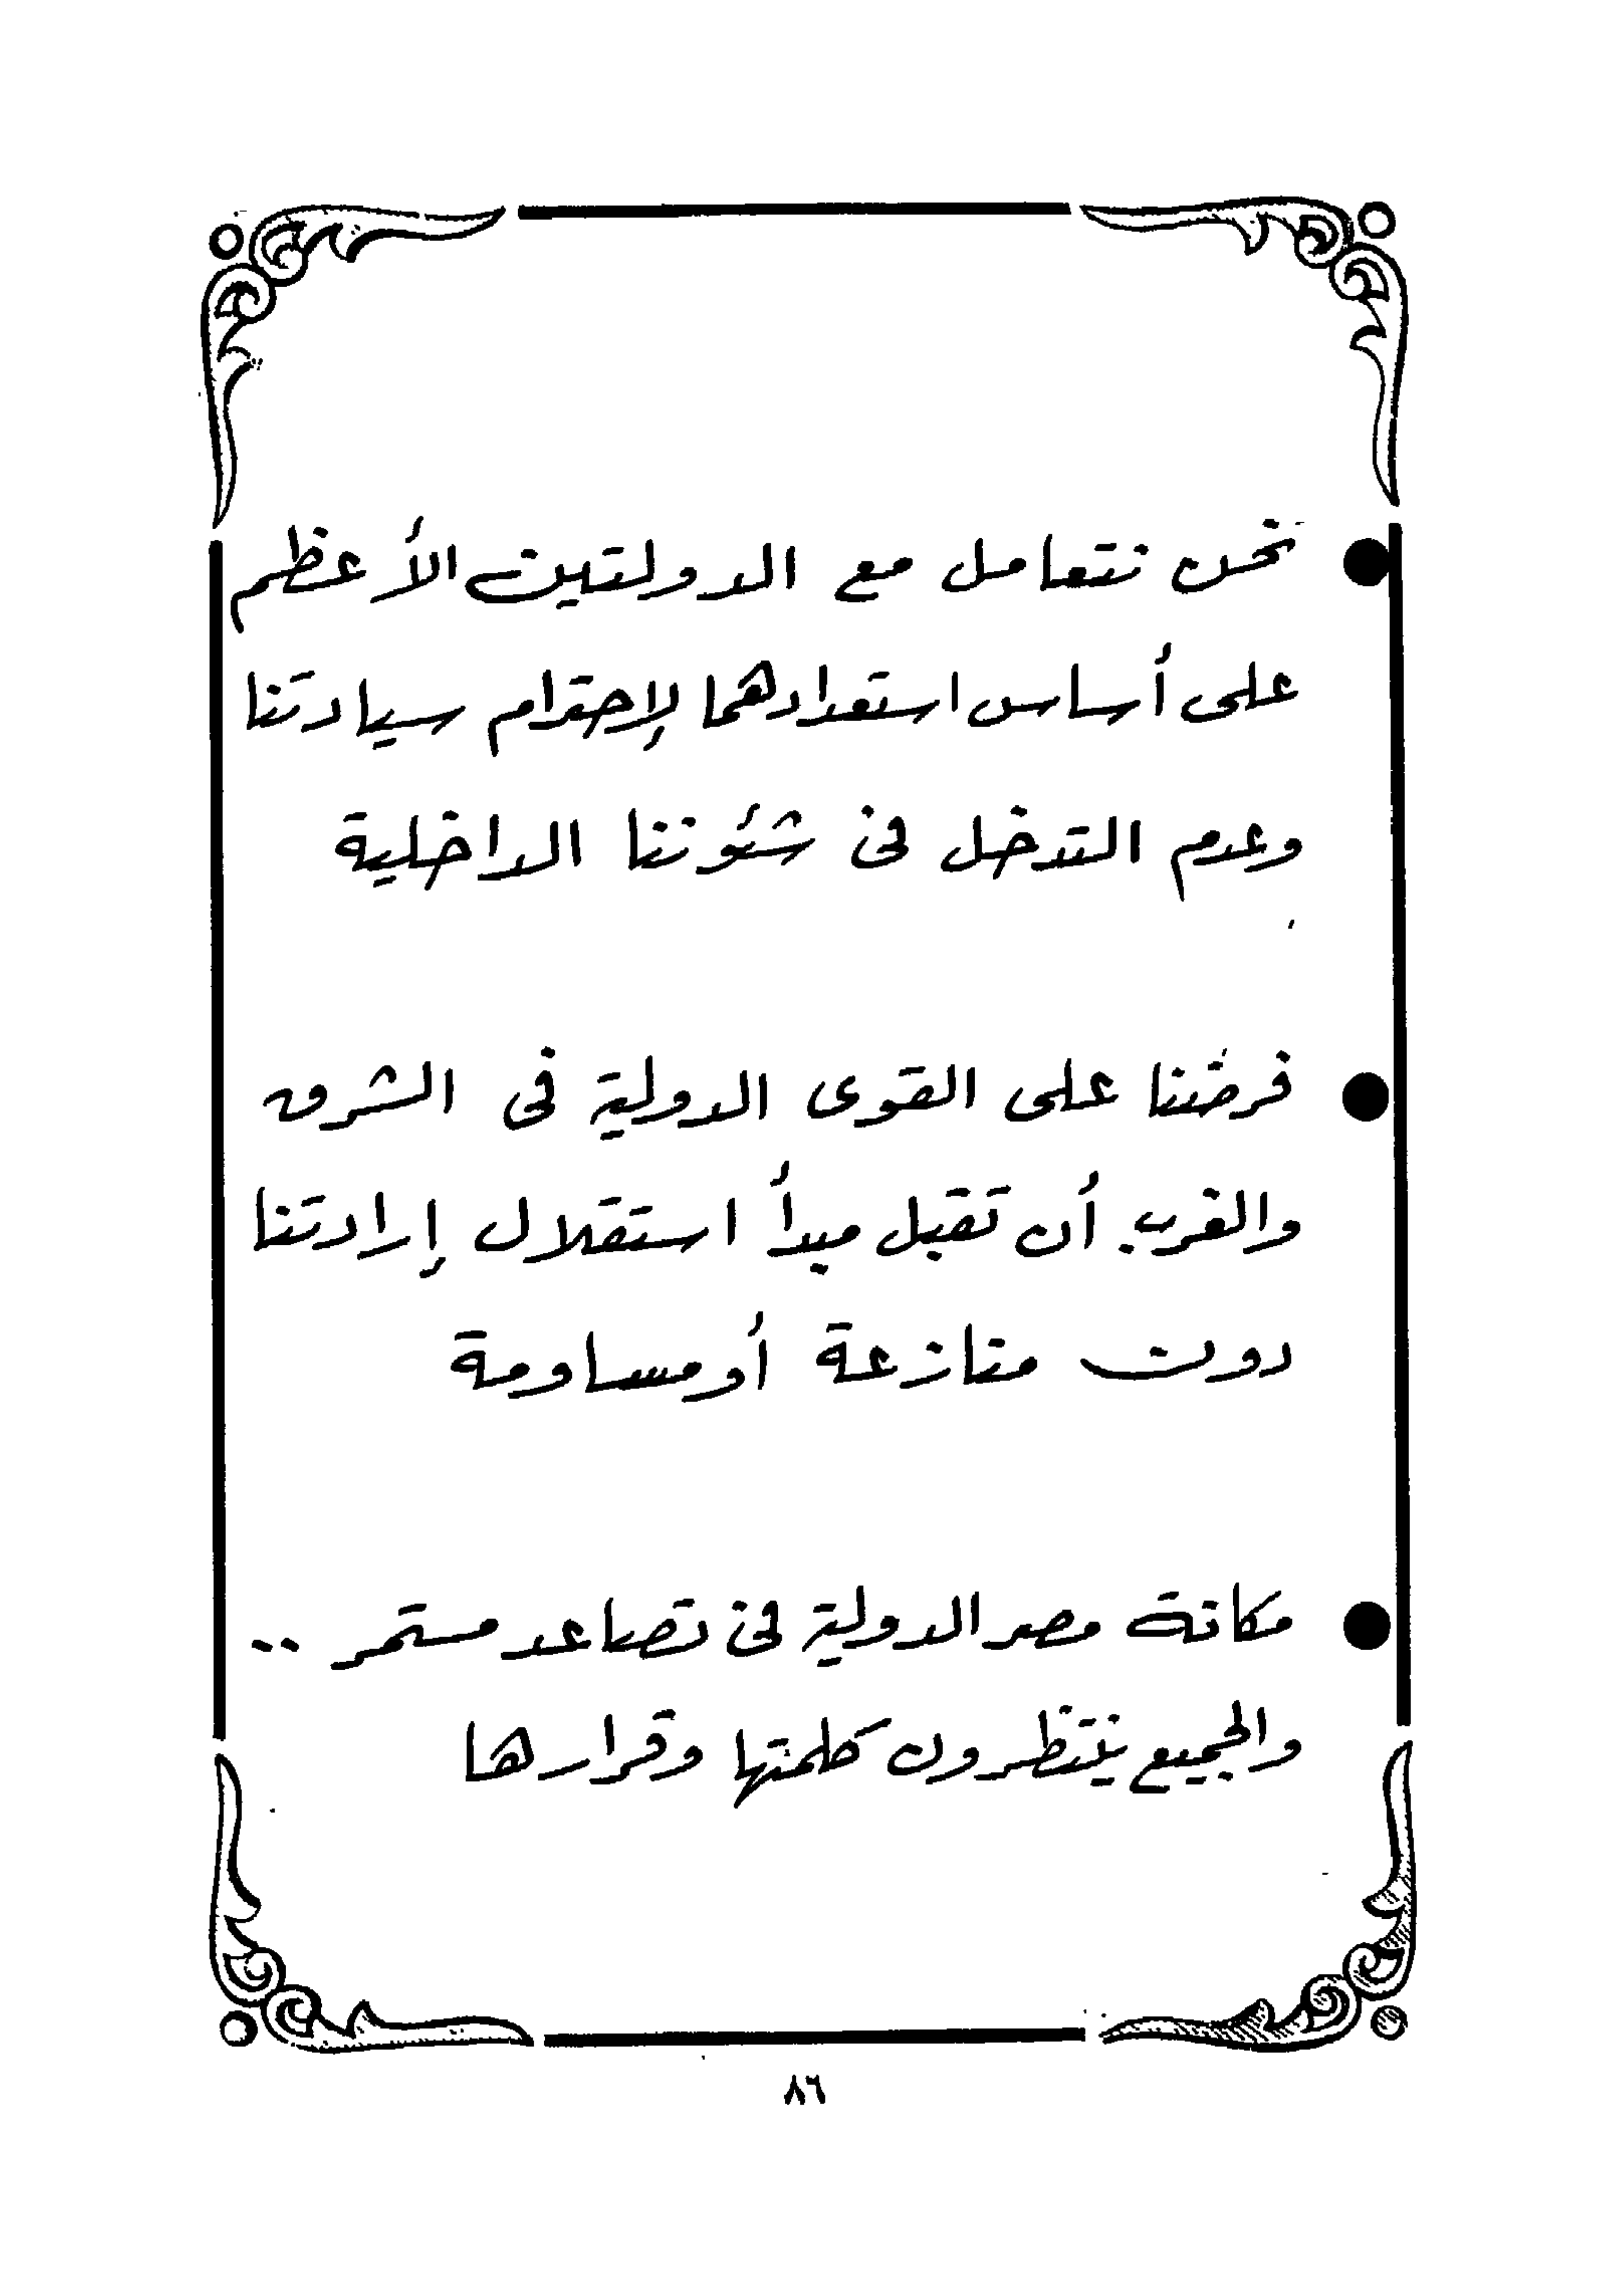 ● نحن نتعامل مع الدولتين الأعظم
على أساس استعدادهما لإحترام سيادتنا
وعدم التدخل فى شئوننا الداخلية
● فرضنا على القوى الدولية فى الشرق
والغرب أن تقبل مبدأ استقلال إرادتنا
دون منازعة أو مساومة
● مكانة مصر الدولية فى تصاعد مستمر ..
والجميع ينتظرون كلمتها وقرارها
٨٦